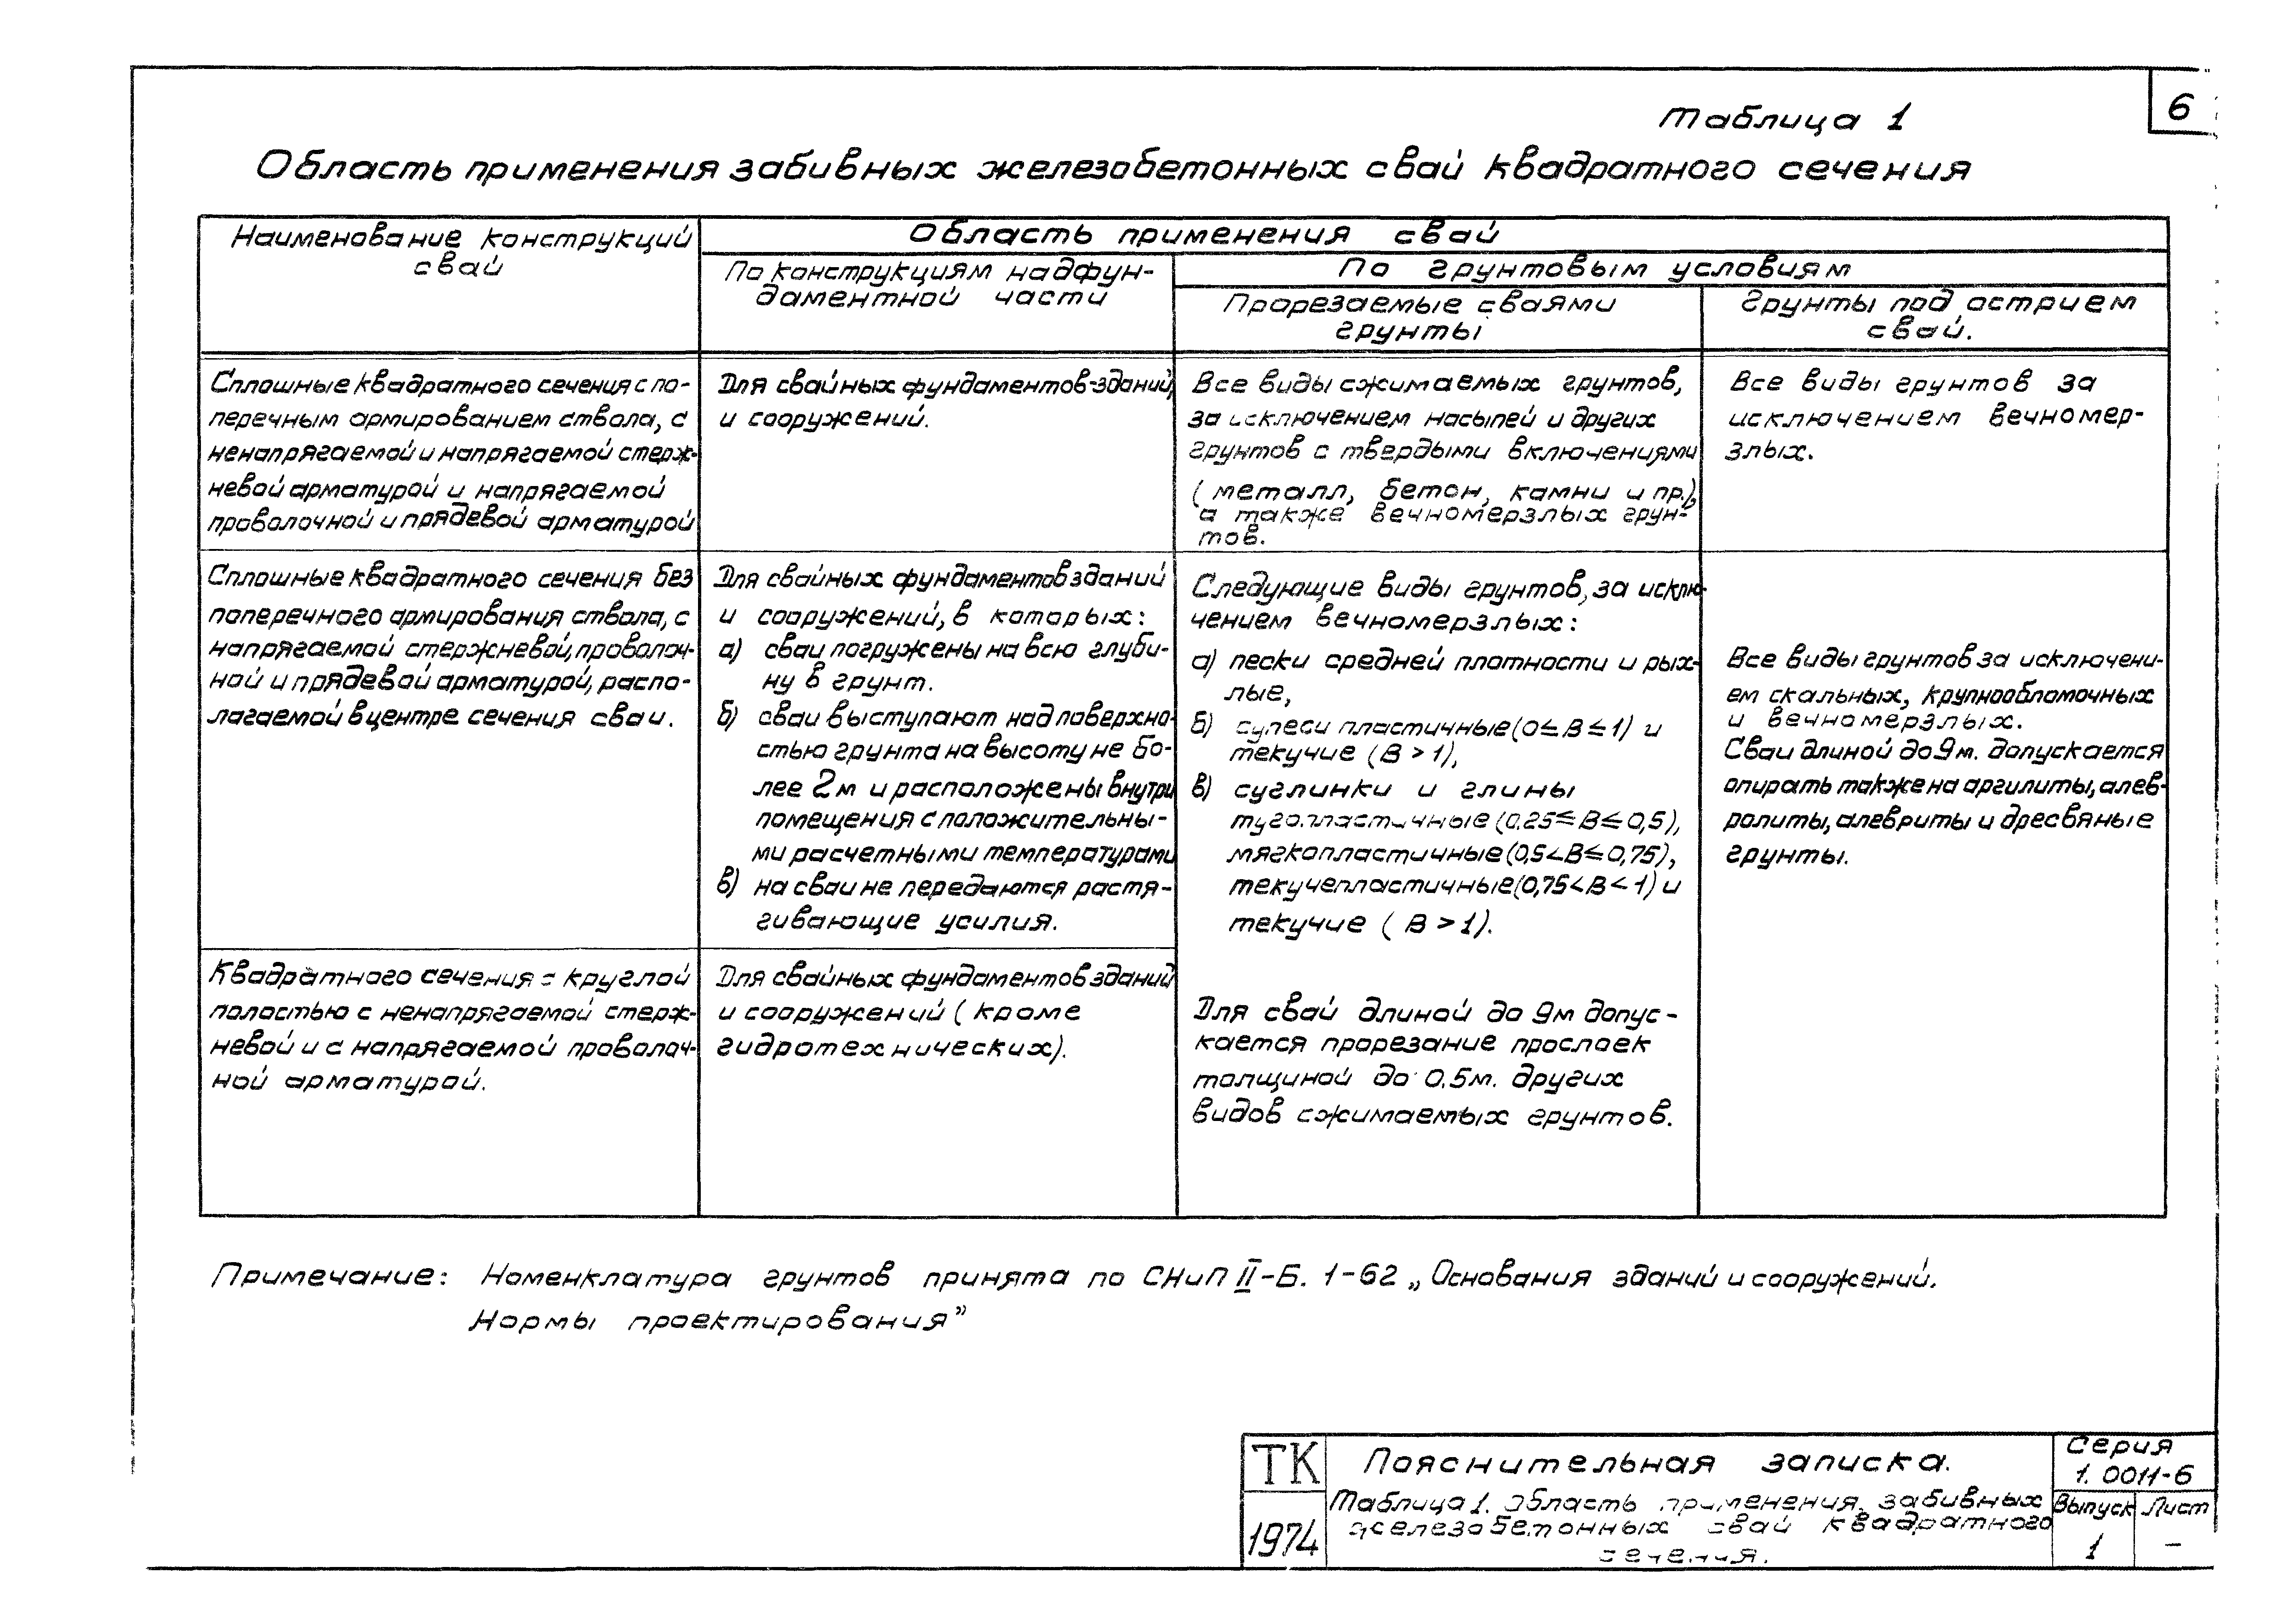 6
Таблица 1
Область применения забивных железобетонных свай квадратного сечения
Наименование конструкций
свай
Область применения свай
По конструкциям надфун-
даментной части
По грунтовым условиям
Прорезаемые сваями
грунты
Грунты под острием
свай.
Сплошные квадратного сечения с по-
перечным армированием ствола, с
ненапрягаемой и напрягаемой стерж-
невой арматурой и напрягаемой
проволочной и прядевой арматурой
Для свайных фундаментов зданий,
и сооружений.
Все виды сжимаемых грунтов,
за исключением насыпей и других
грунтов с твердыми включениями
(металл, бетон, камни и пр.),
а также вечномерзлых грун-
тов.
Все виды грунтов за
исключением вечномер-
злых.
Сплошные квадратного сечения без
поперечного армирования ствола, с
напрягаемой стержневой, проволоч-
ной и прядевой арматурой, распо-
лагаемой в центре сечения сваи.
Для свайных фундаментов зданий
и сооружений, в которых:
а) сваи погружены на всю глуби-
ну в грунт.
б) сваи выступают над поверхно-
стью грунта на высоту не бо-
лее 2м и расположены внутри
помещения с положительны-
ми расчетными температурами
в) на сваи не передаются растя-
гивающие усилия.
Следующие виды грунтов, за исклю-
чением вечномерзлых:
а) пески средней плотности и рых-
лые,
б) супеси пластичные (0≤В≤1) и
текучие (В>1),
в) суглинки и глины
тугопластичные (0.25≤В≤0,5),
мягкопластичные (0,5<В≤0,75),
текучепластичные (0,75<В<1) и
текучие (В>1).
Для свай длиной до 9м допус-
кается прорезание прослоек
толщиной до 0.5м. других
видов сжимаемых грунтов.
Все виды грунтов за исключени-
ем скальных, крупнообломочных
и вечномерзлых.
Сваи длиной до 9м. допускается
опирать также на аргилиты, алев-
ролиты, алевриты и дресвяные
грунты.
Квадратного сечения с круглой
полостью с ненапрягаемой стерж-
невой и с напрягаемой проволоч-
ной арматурой.
Для свайных фундаментов зданий
и сооружений (кроме
гидротехнических).
Примечание: Номенклатура грунтов принята по СНиП II-Б. 1-62 „Основания зданий и сооружений.
Нормы проектирования"
ТК
1974
Пояснительная записка.
Таблица 1. Область применения забивных
железобетонных свай квадратного
сечения.
Серия
1.0011-6
Выпуск
1
Лист
–